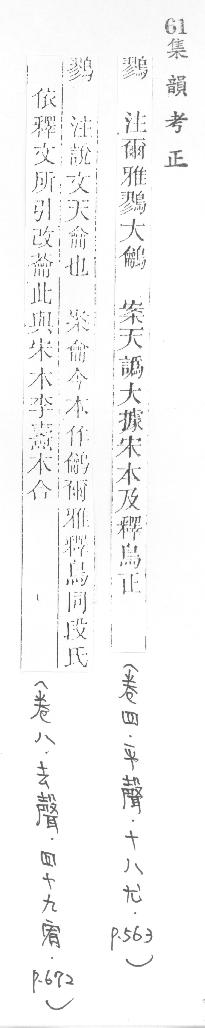 61 集韻考正
鷚 注爾雅鷚大鸙 案天譌大據宋本及釋鳥正
(卷四·平聲·十八尤·p.563)
鷚 注說文天龠也 案龠今本作鸙爾雅釋鳥同段氏
依釋文所引改蘥此與宋本李燾本合
(卷八·去聲·四十九宥·p.692)